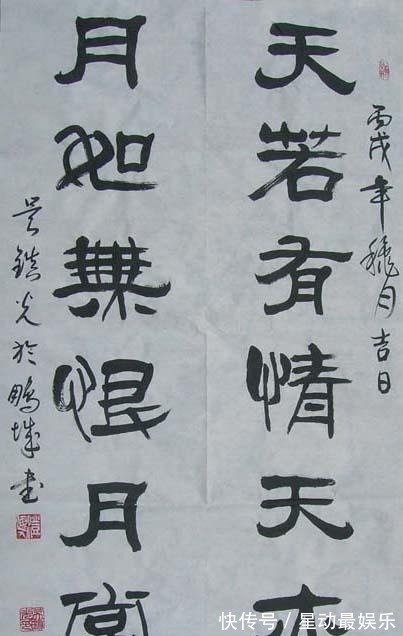 丙戌年穐月吉日
天若有情天亦
月如無恨月常
吴鎮光於鵬城书
快传号/星动最娱乐